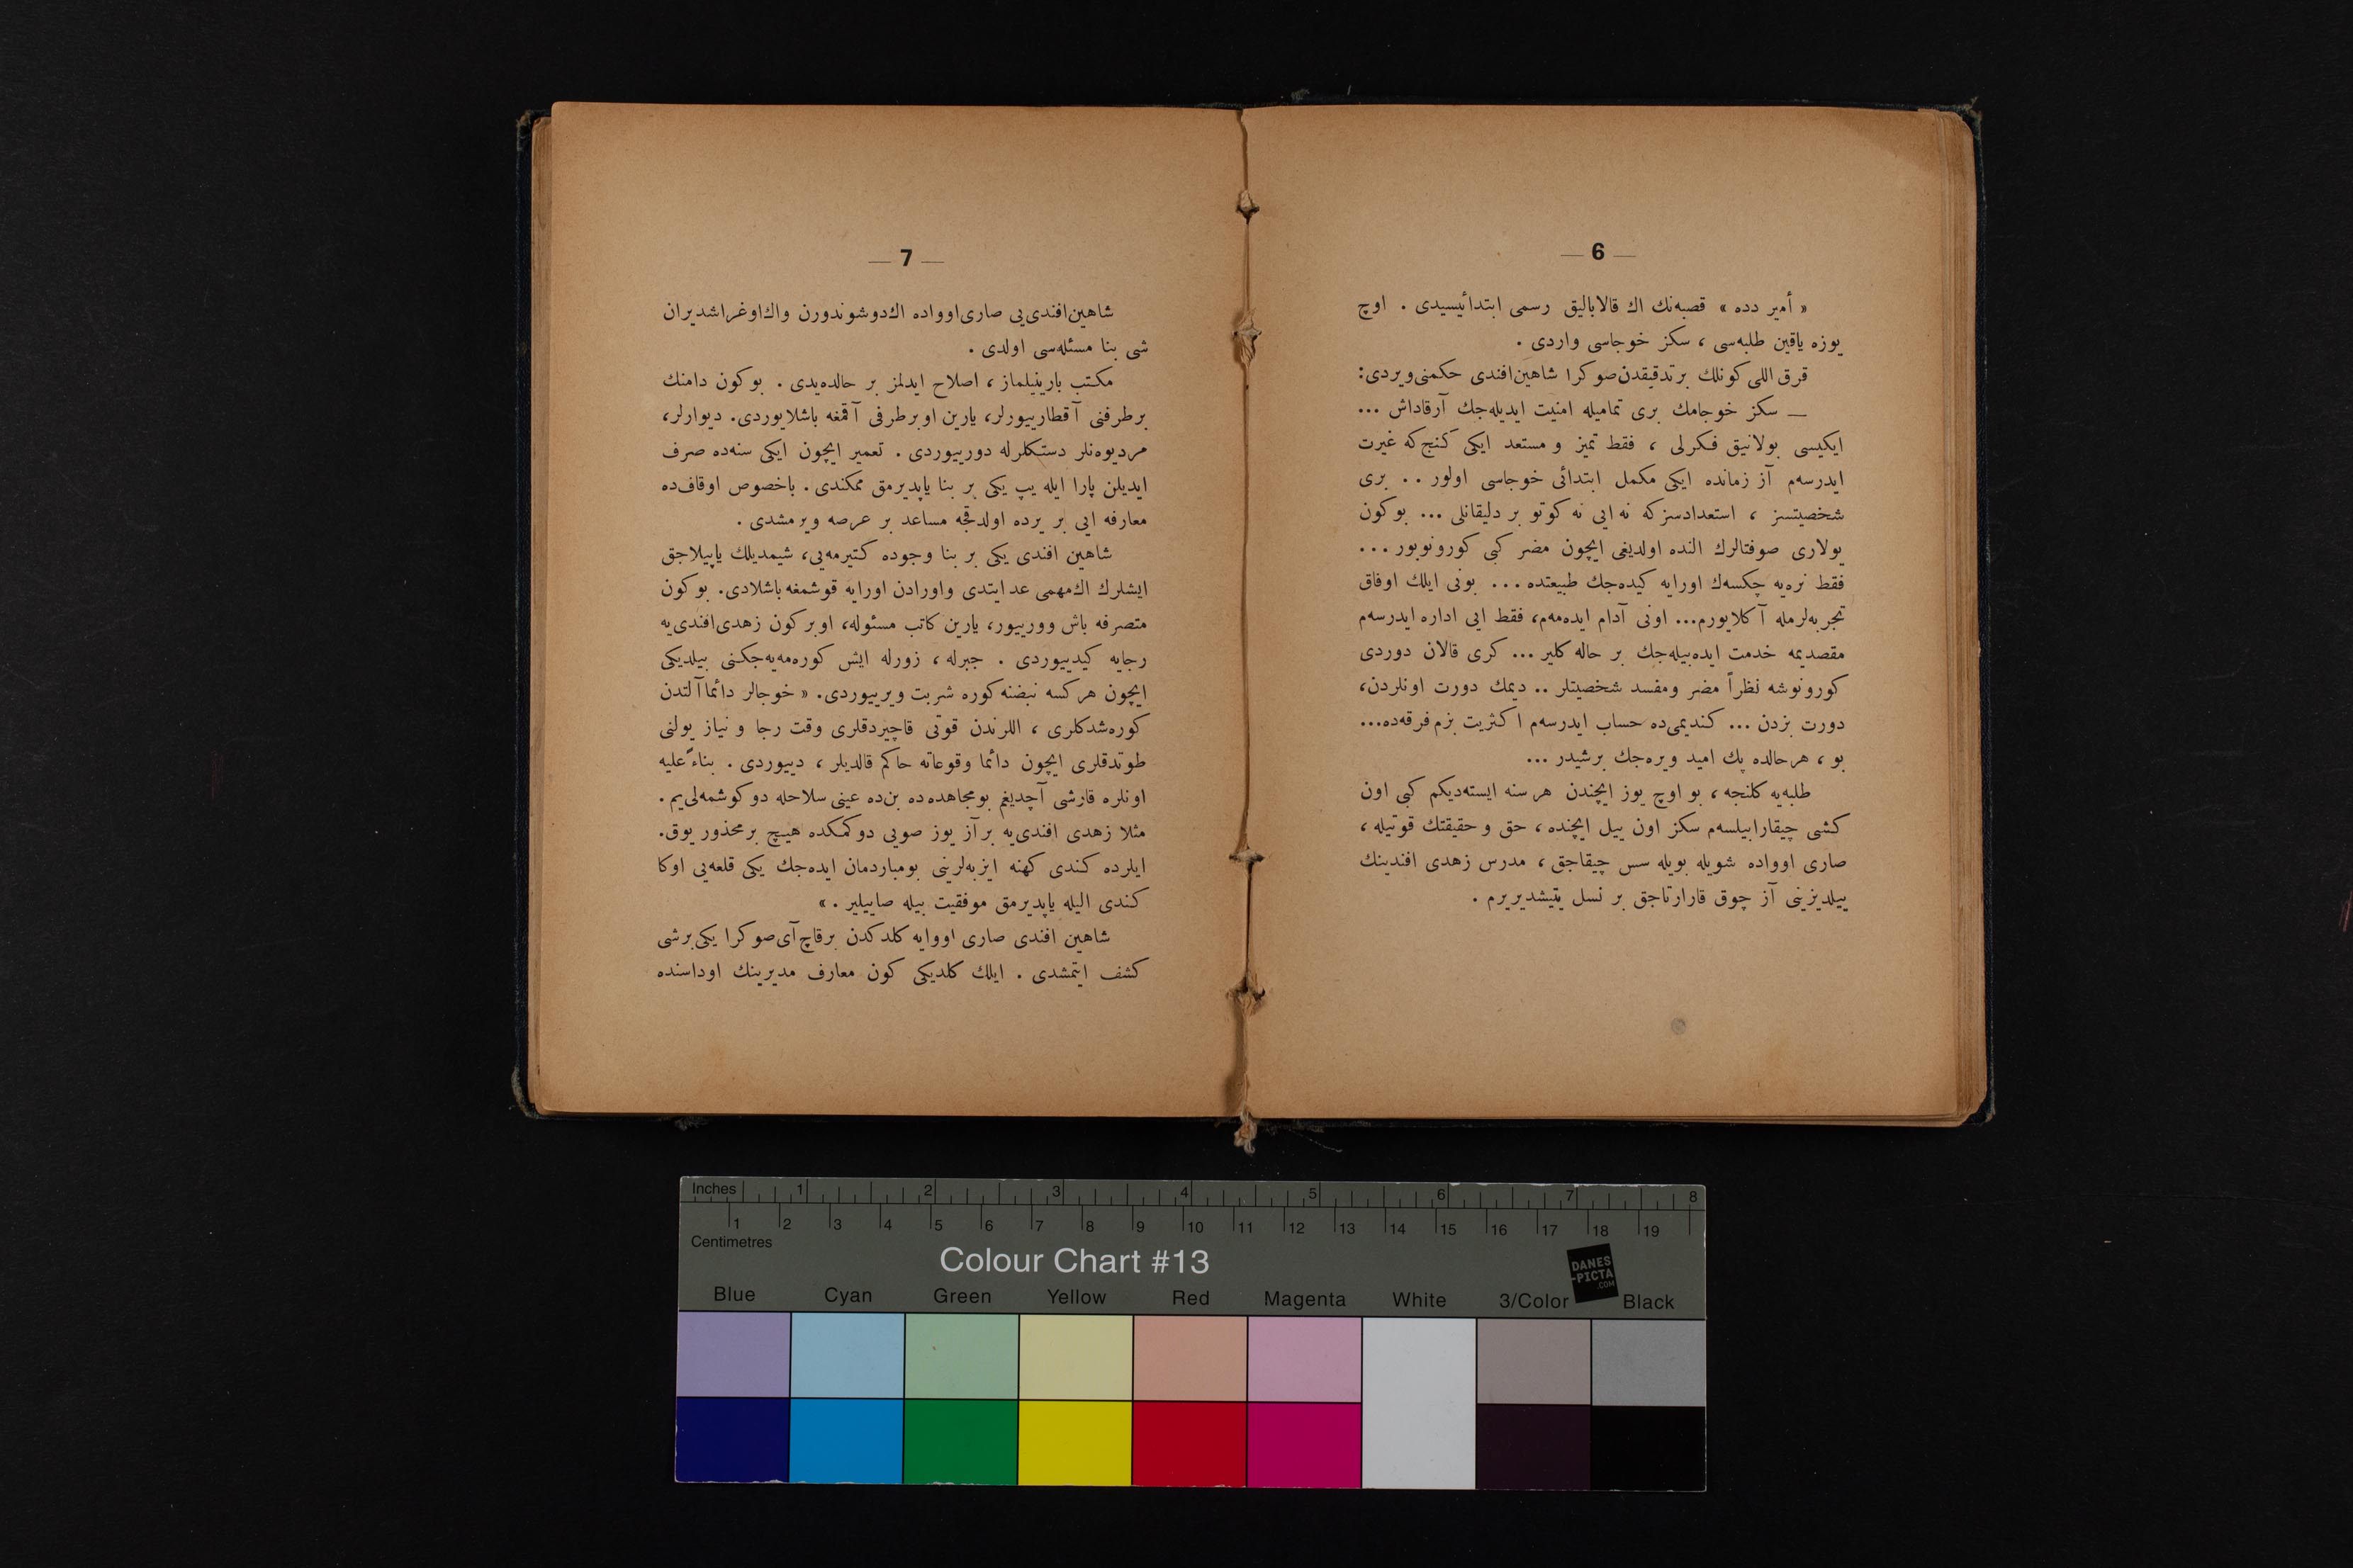 — 6 —
« أمیر دده » قصبه‌نك اك قالابالیق رسمی ابتدائیسیدی . اوچ
یوزه یاقین طلبه‌سی ، سکز خوجاسی واردی .
قرق اللی کونلك برتدقیقدن صوکرا شاهین افندی حکمنی ویردی:
— سکز خوجامك بری تمامیله امنیت ایدیله‌جك آرقاداش ...
ایکیسی بولانیق فکرلی ، فقط تمیز و مستعد ایکی کنج که غیرت
ایدرسه‌م آز زمانده ایکی مکمل ابتدائی خوجاسی اولور .. بری
شخصیتسز ، استعدادسز که نه ایی نه کوتو بر دلیقانلی ... بوکون
یولاری صوفتالرك النده اولدیغی ایچون مضر کبی کورونویور ...
فقط نره‌یه چکسه‌ك اورایه کیده‌جك طبیعتده ... بونی ایلك اوفاق
تجربه‌لرمله آکلایورم... اونی آدام ایده‌مه‌م، فقط ایی اداره ایدرسه‌م
مقصدیمه خدمت ایده‌بیله‌جك بر حاله کلیر ... کری قالان دوردی
کورونوشه نظراً مضر ومفسد شخصیتلر .. دیمك دورت اونلردن،
دورت بزدن ... کندیمی‌ده حساب ایدرسه‌م اکثریت بزم فرقه‌ده...
بو ، هرحالده پك امید ویره‌جك برشیدر ...
طلبه‌یه کلنجه ، بو اوچ یوز ایچندن هر سنه ایسته‌دیکم کبی اون
کشی چیقارابیلسه‌م سکز اون ییل ایچنده ، حق و حقیقتك قوتیله ،
صاری اوواده شویله بویله سس چیقاجق ، مدرس زهدی افندینك
ییلدیزینی آز چوق قارارتاجق بر نسل یتیشدیریرم .
— 7 —
شاهین افندی‌یی صاری اوواده اك دوشوندورن واك اوغراشدیران
شی بنا مسئله‌سی اولدی .
مکتب بارینیلماز ، اصلاح ایدلمز بر حالده‌یدی . بوکون دامنك
برطرفنی آقطارییورلر، یارین اوبرطرفی آقمغه باشلایوردی. دیوارلر،
مردیوه‌نلر دستکلرله دورییوردی . تعمیر ایچون ایکی سنه‌ده صرف
ایدیلن پارا ایله یپ یکی بر بنا یاپدیرمق ممکندی . باخصوص اوقاف‌ده
معارفه ایی بر یرده اولدقجه مساعد بر عرصه ویرمشدی .
شاهین افندی یکی بر بنا وجوده کتیرمه‌یی، شیمدیلك یاپیلاجق
ایشلرك اك مهمی عد ایتدی واورادن اورایه قوشمغه باشلادی. بوکون
متصرفه باش وورییور، یارین کاتب مسئوله، اوبر کون زهدی افندی‌یه
رجایه کیدییوردی . جبرله ، زورله ایش کوره‌مه‌یه‌جکنی بیلدیکی
ایچون هرکسه نبضنه کوره شربت ویرییوردی. « خوجالر دائما آلتدن
کوره‌شدکلری ، اللرندن قوتی قاچیردقلری وقت رجا و نیاز یولنی
طوتدقلری ایچون دائما وقوعاته حاکم قالدیلر ، دییوردی . بناءً علیه
اونلره قارشی آچدیغم بومجاهده‌ده بن‌ده عینی سلاحله دوکوشمه‌لی‌یم .
مثلا زهدی افندی‌یه بر آز یوز صویی دوکمکده هیچ برمحذور یوق.
ایلرده کندی کهنه ایزبه‌لرینی بومباردمان ایده‌جك یکی قلعه‌یی اوکا
کندی الیله یاپدیرمق موفقیت بیله صاییلیر . »
شاهین افندی صاری اووایه کلدکدن برقاچ آی صوکرا یکی برشی
کشف ایتمشدی . ایلك کلدیکی کون معارف مدیرینك اوداسنده
Inches 1 2 3 4 5 6 7 8
1 2 3 4 5 6 7 8 9 10 11 12 13 14 15 16 17 18 19
Centimetres
Colour Chart #13
DANES
-PICTA
.COM
Blue Cyan Green Yellow Red Magenta White 3/Color Black